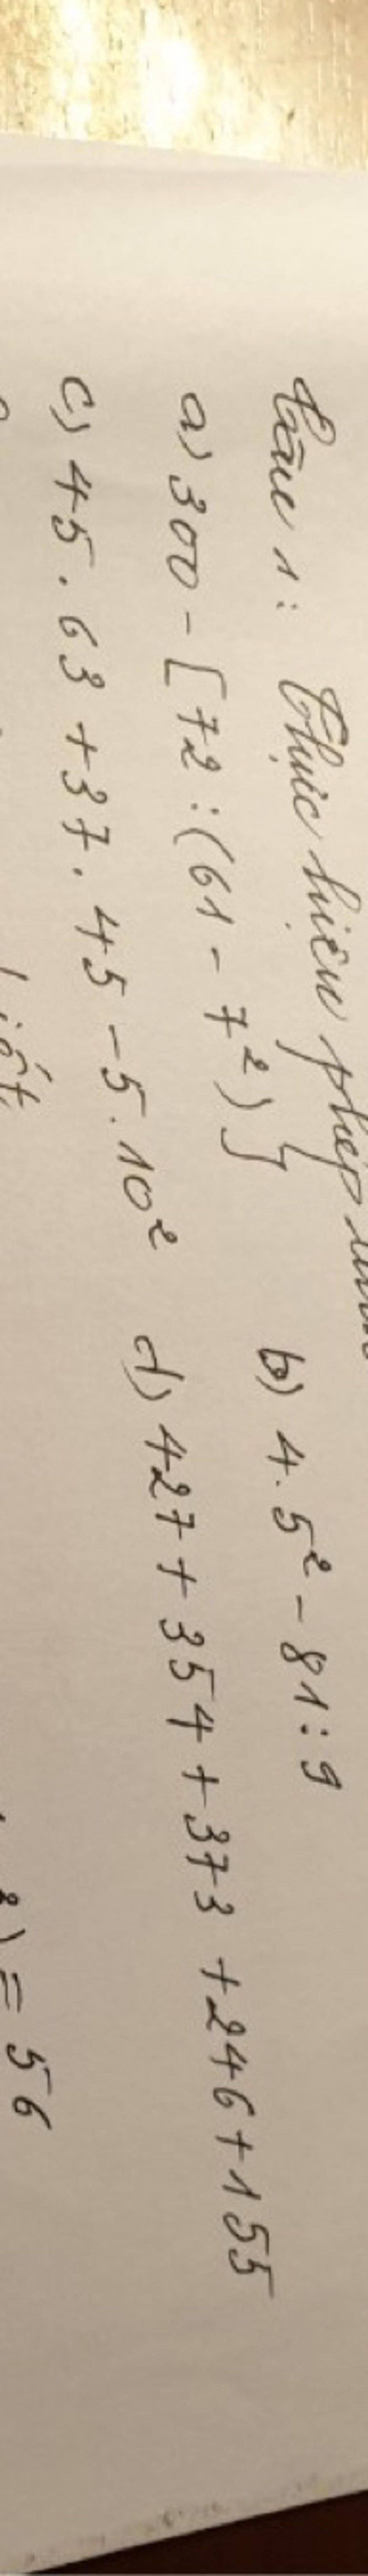 Câu 1: Thực hiện phép
a) 300 - [72 : (61 - 7²)] b) 4. 5² - 81 : 9
c) 45 . 63 + 37. 45 - 5. 10² d) 427 + 354 + 373 + 246 + 155
= 56